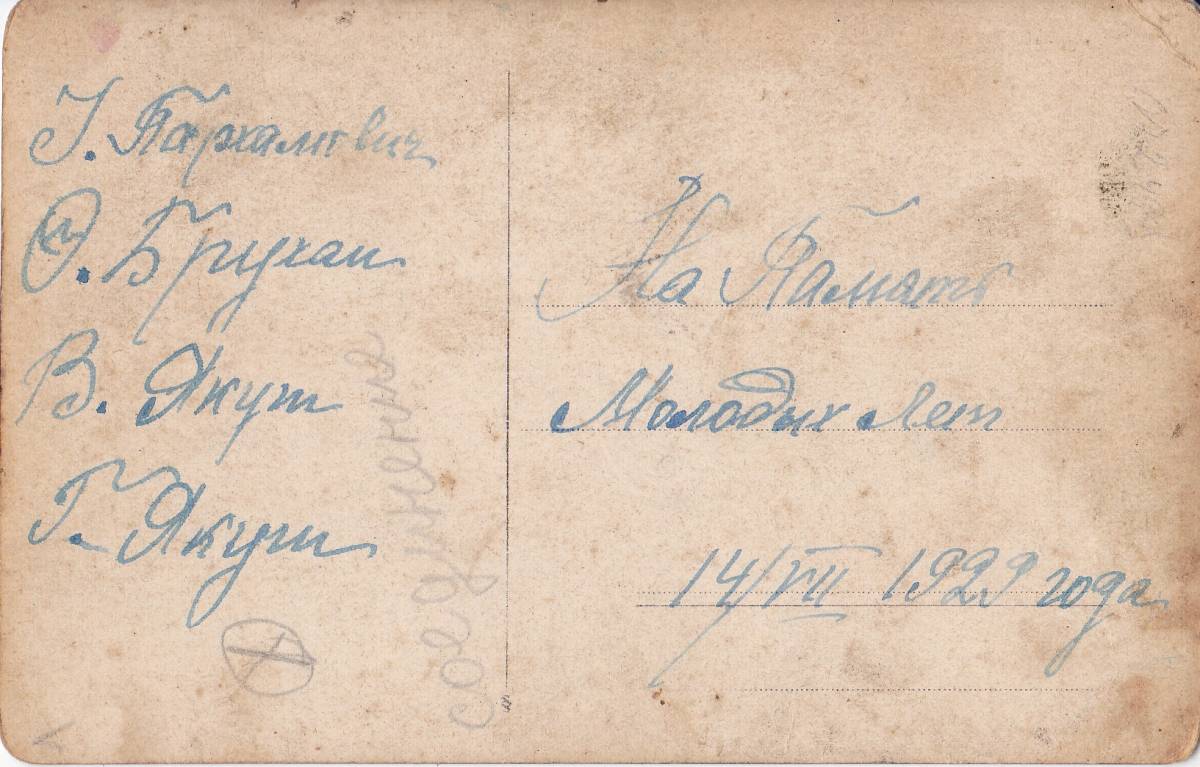 І. Пархамович
Э. Брухан
В. Якут
Г. Якут
соединения
На Память
Молодых Лет
14/VII 1929 года